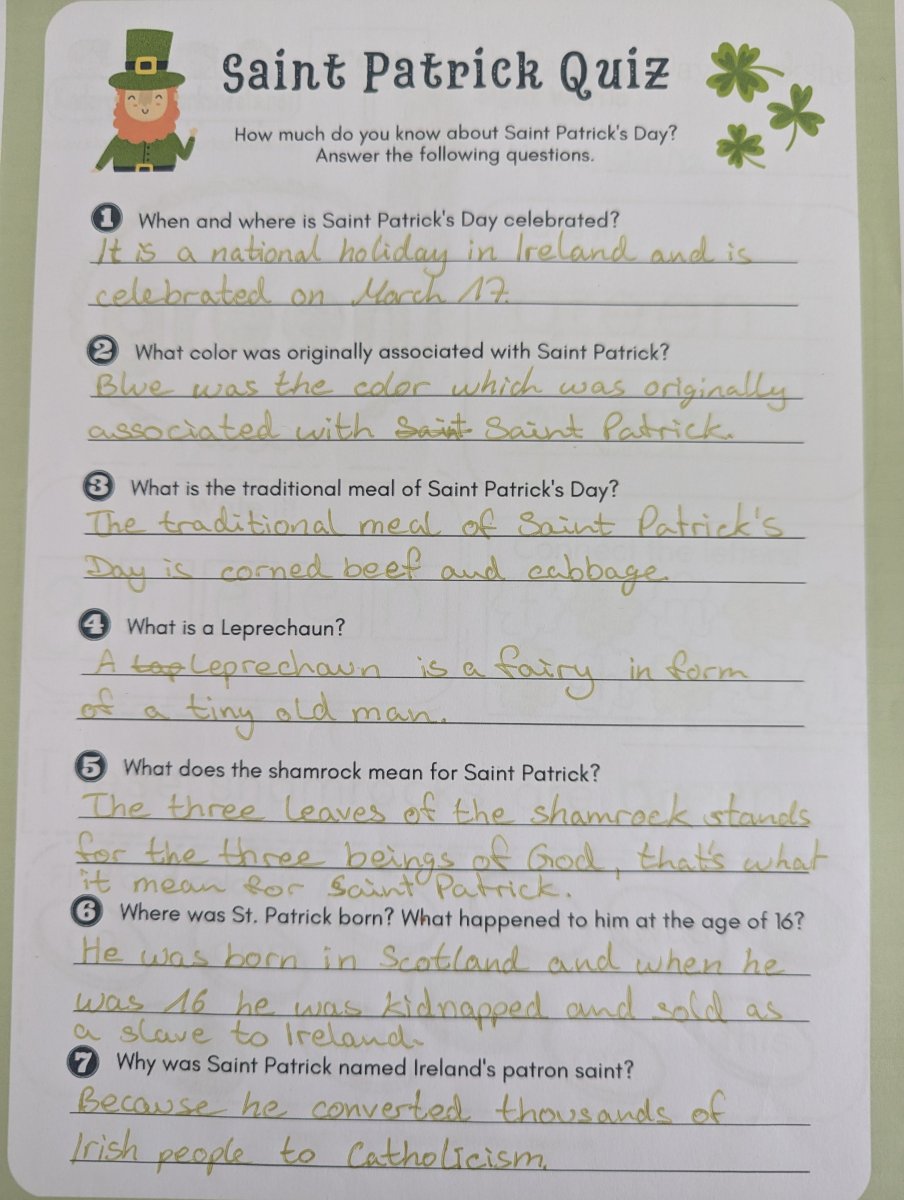 Saint Patrick Quiz
How much do you know about Saint Patrick's Day?
Answer the following questions.
1 When and where is Saint Patrick's Day celebrated?
It is a national holiday in Ireland and is
celebrated on March 17.
2 What color was originally associated with Saint Patrick?
Blue was the color which was originally
associated with Saint Saint Patrick.
3 What is the traditional meal of Saint Patrick's Day?
The traditional meal of Saint Patrick's
Day is corned beef and cabbage.
4 What is a Leprechaun?
A lep Leprechaun is a fairy in form
of a tiny old man.
5 What does the shamrock mean for Saint Patrick?
The three leaves of the shamrock stands
for the three beings of God, that's what
it mean for Saint Patrick.
6 Where was St. Patrick born? What happened to him at the age of 16?
He was born in Scotland and when he
was 16 he was kidnapped and sold as
a slave to Ireland.
7 Why was Saint Patrick named Ireland's patron saint?
Because he converted thousands of
Irish people to Catholicism.